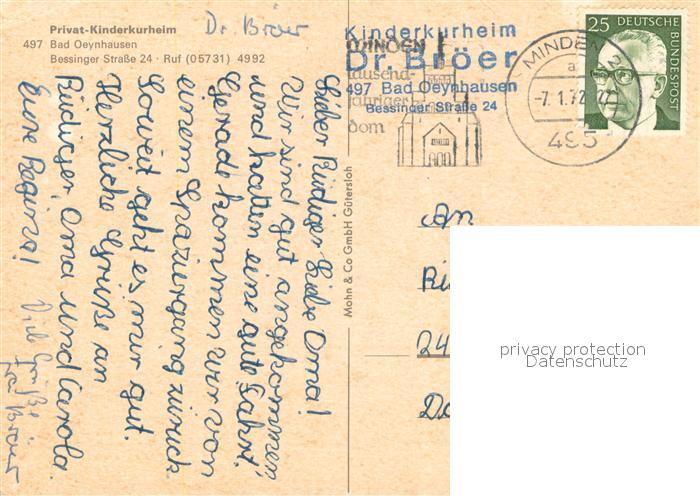 Privat-Kinderkurheim
497 Bad Oeynhausen
Bessinger Straße 24 · Ruf (05731) 4992
Dr. Bröer
Kinderkurheim
Dr. Bröer
497 Bad Oeynhausen
Bessinger Straße 24
MINDEN
tausend-
jähriger
dom
MINDEN
a
-7.1.72
495
25
DEUTSCHE BUNDESPOST
Lieber Rüdiger, Liebe Oma!
Wir sind gut angekommen
und hatten eine gute Fahrt.
Gerade kommen wir von
einem Spaziergang zurück
Soweit geht es mir gut.
Herzliche Grüße an
Rüdiger, Oma und Carola.
Eure Regina!
Viele Grüße
Mohn & Co GmbH Gütersloh
An
24
privacy protection
Datenschutz